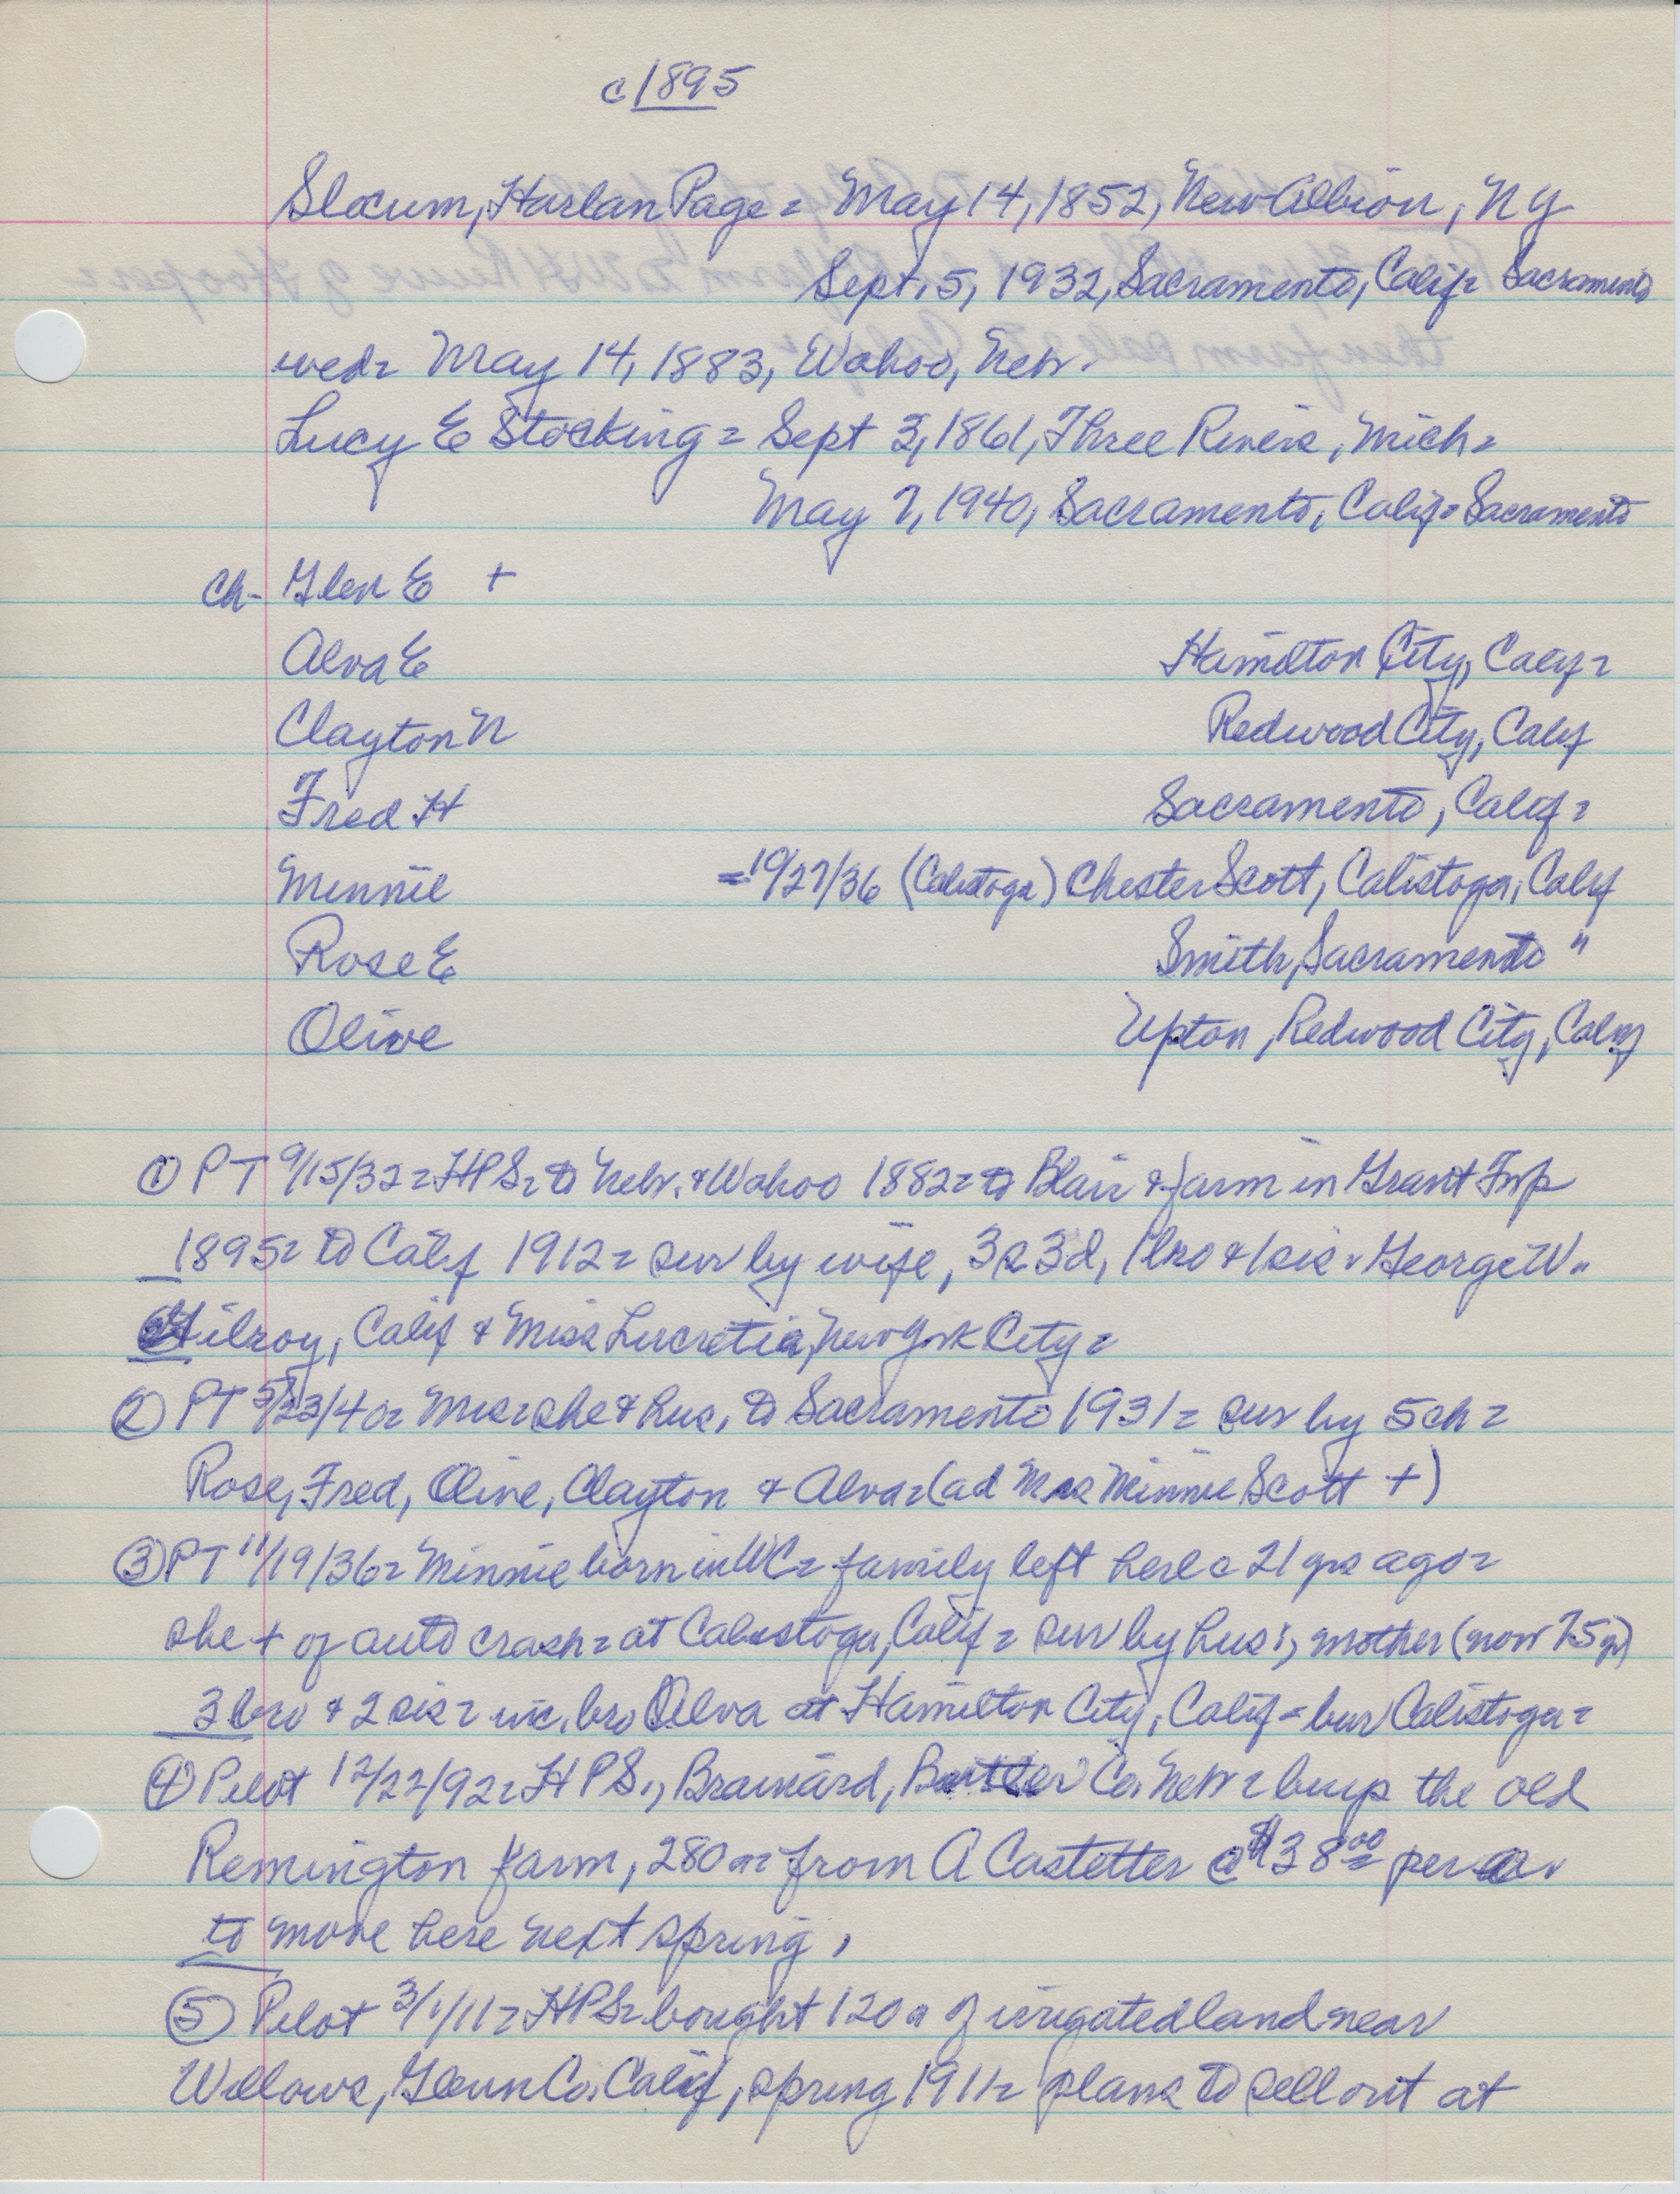 c 1895
Slocum, Harlan Page = May 14, 1852, New Albion, NY
Sept. 5, 1932, Sacramento, Calif = Sacramento
wed = May 14, 1883, Wahoo, Nebr.
Lucy E Stocking = Sept 3, 1861, Three Rivers, Mich =
May 7, 1940, Sacramento, Calif = Sacramento
Ch - Glen E +
Alva E Hamilton City, Calif =
Clayton N Redwood City, Calif
Fred H Sacramento, Calif =
Minnie = 10/27/36 (Calistoga) Chester Scott, Calistoga, Calif
Rose E Smith, Sacramento "
Olive Upton, Redwood City, Calif
① PT 9/15/32 = HPS = to Nebr. & Wahoo 1882 = to Blair & farm in Grant Twp
1895 = to Calif 1912 = sur by wife, 3s 3d, 1 bro & 1 sis = George W..
Gilroy, Calif & Miss Lucretia, New York City =
② PT 5/23/40 = Mrs = she & hus. to Sacramento 1931 = sur by 5 ch =
Rose, Fred, Olive, Clayton & Alva = (ad Mrs Minnie Scott +)
③ PT 11/19/36 = Minnie born in WC = family left here c 21 yrs ago =
she + of auto crash = at Calistoga, Calif = sur by hus;, mother (now 75 y)
3 bro & 2 sis = inc. bro Alva at Hamilton City, Calif = bur Calistoga =
④ Pilot 12/22/92 = HPS., Brainard, Butler Co. Nebr = buys the old
Remington farm, 280 a = from A Castetter @ $38.00 per a.
to move here next spring,
⑤ Pilot 3/1/11 = HPS = bought 120 a of irrigated land near
Willows, Glenn Co. Calif, spring 1911 = plans to sell out at